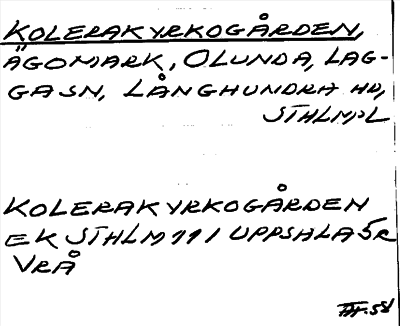 KOLERAKYRKOGÅRDEN,
ÄGOMARK, OLUNDA, LAG-
GA SN, LÅNGHUNDRA HD,
STHLM,L
KOLERAKYRKOGÅRDEN
EK STHLM 111 UPPSALA 5R
VRÅ